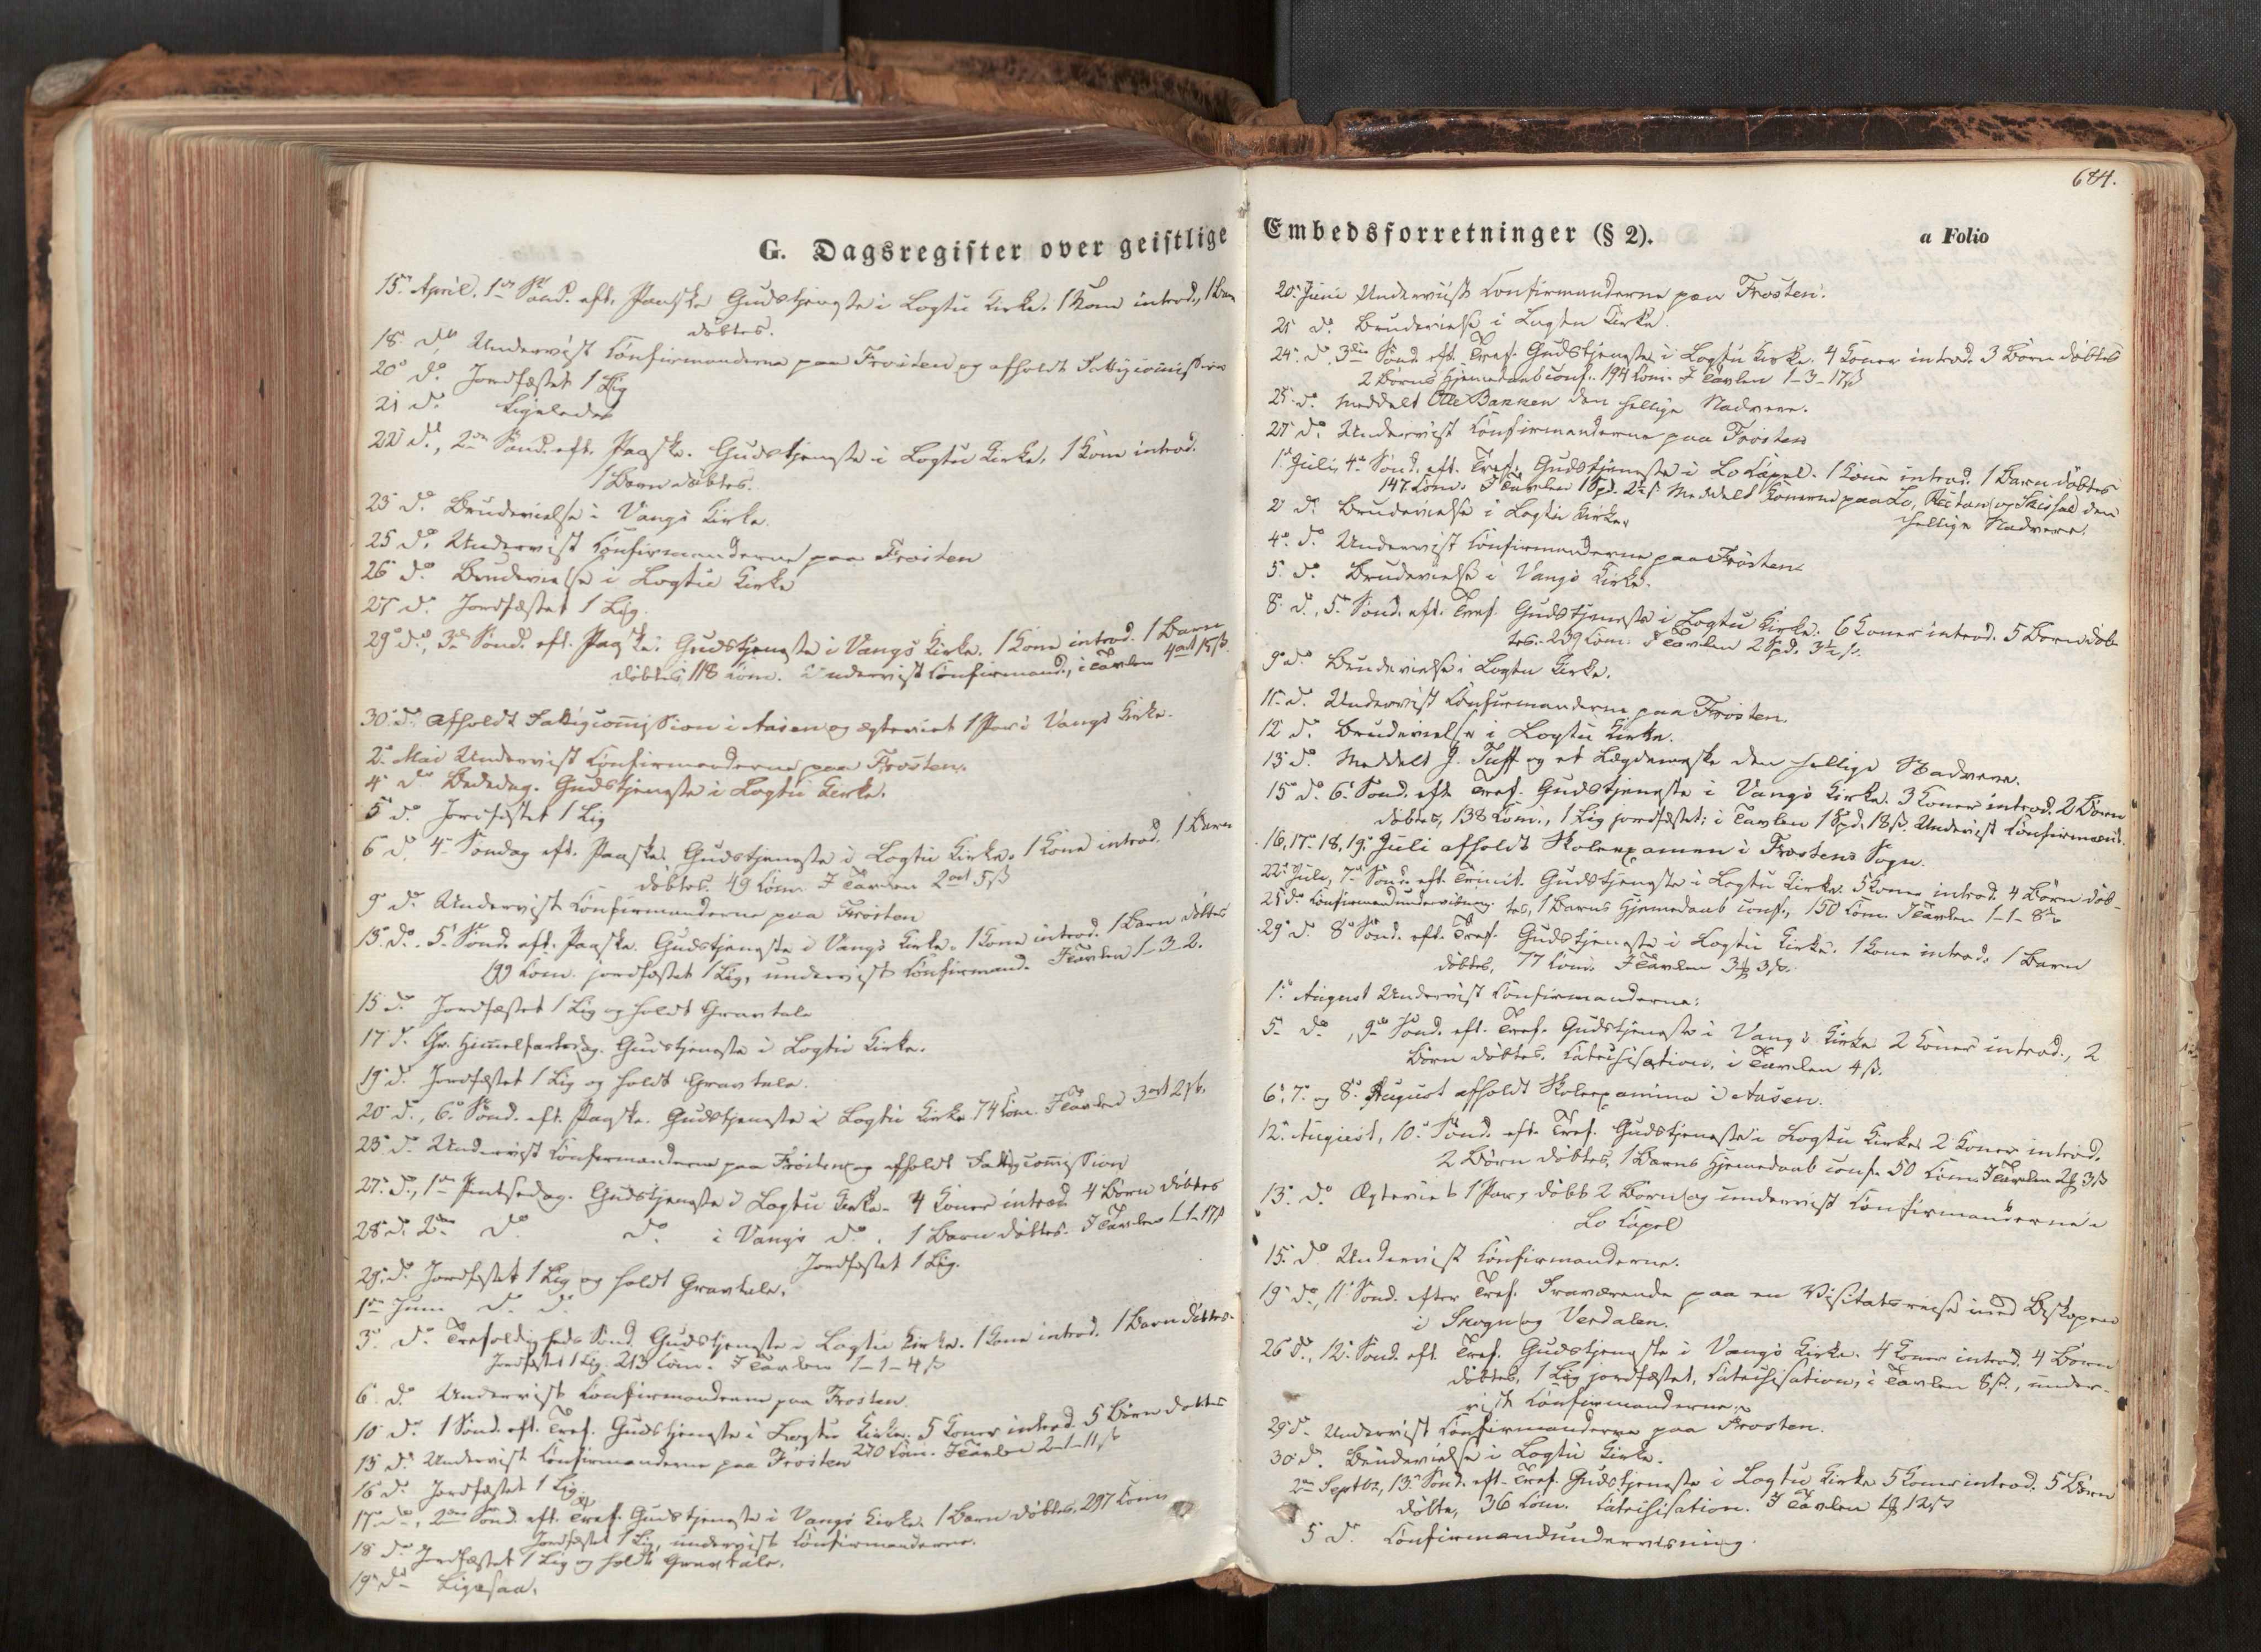 G. Dagsregister over geistlige
15. April. 1ste Sönd. eft. Paaske Gudstjeneste i Logtu Kirke. 1 Kone introd., 1 Barn
döbtes.
18. do Underviist Confirmanderne paa Frosten og afholdt Fattigcommission
20. do Jordfæstet 1 Lig
21 do Ligeledes
22 do, 2den Sönd. eft. Paaske. Gudstjeneste i Logtu Kirke. 1 Kone introd.
1 Barn döbtes.
23 do Brudevielse i Vangs Kirke.
25 do. Undervist Confirmanderne paa Frosten
26 do. Brudevielse i Logtu Kirke
27 do. Jordfæstet 1 Lig.
29 do, 3die Sönd. eft. Paaske. Gudstjeneste i Vangs Kirke. 1 Kone introd. 1 Barn
döbtes, 118 Com. Undervist Confirmand., i Tavlen 4 ort 15 ß.
30. do. Afholdt Fattigcommission i Aasen og ægteviet 1 Par i Vangs Kirke.
2. Mai Undervist Confirmanderne paa Frosten.
4 do Bededag. Gudstjeneste i Logtu Kirke.
5 do. Jordfæstet 1 Lig
6 do. 4. Söndag eft. Paaske. Gudstjeneste i Logtu Kirke. 1 Kone introd. 1 Barn
döbtes. 49 Com. I Tavlen 2 ort 5 ß
9 do Undervist Confirmanderne paa Frosten
13. do. 5. Sönd. eft. Paaske. Gudstjeneste i Vangs Kirke. 1 Kone introd. 1 Barn döbtes
199 Com. jordfæstet 1 Lig, undervist Confirmand. I Tavlen 1-3-2.
15 do Jordfæstet 1 Lig og holdt Gravtale
17 do. Chr. Himmelfartsdag. Gudstjeneste i Logtu Kirke.
19 do. Jordfæstet 1 Lig og holdt Gravtale.
20 do., 6. Sönd. eft. Paaske. Gudstjeneste i Logtu Kirke 74 Com. I Tavlen 3 ort 2 ß.
23. do. Undervist Confirmanderne paa Frosten og afholdt Fattigcommission
27. do., 1ste Pintsedag. Gudstjeneste i Logtu Kirke. 4 Koner introd. 4 Börn döbtes
28 do. 2den do do. i Vangs do. 1 Barn döbtes. I Tavlen 1-1-17 ß
Jordfæstet 1 Lig.
29. do. Jordfæstet 1 Lig og holdt Gravtale.
1ste Juni do. do.
3. do. Trefoldigheds Sönd. Gudstjeneste i Logtu Kirke. 1 Kone introd. 1 Barn döbtes.
Jordfæstet 1 Lig. 213 Com. I Tavlen 1-1-4 ß
6. do. Undervist Confirmanderne paa Frosten.
10 do. 1 Sönd. eft. Tref. Gudstjeneste i Logtu Kirke. 5 Koner introd. 5 Börn döbtes
270 Com. I Tavlen 2-1-11 ß
13 do. Undervist Confirmanderne paa Frosten
16 do. Jordfæstet 1 Lig.
17 do, 2den Sönd. eft. Tref. Gudstjeneste i Vangs Kirke. 1 Barn döbtes, 297 Com
Jordfæstet 1 Lig, undervist Confirmanderne.
18 do. Jordfæstet 1 Lig og holdt Gravtale.
19 do Ligesaa.
684.
Embedsforretninger (§ 2). a Folio
20. Juni Underviist Confirmanderne paa Frosten.
21 do. Brudevielse i Logtu Kirke.
24. do 3die Sönd. eft. Tref. Gudstjeneste i Logtu Kirke. 4 Koner introd. 3 Börn döbtes
2 Börns Hjemedaab conf. 194 Com. I Tavlen 1-3-17 ß
25. do. Meddelt Ole Bakken den hellige Nadvere.
27 do. Undervist Confirmanderne paa Frosten
1. Juli, 4. Sönd. eft. Tref. Gudstjeneste i Lo Capel. 1 Kone introd. 1 Barn döbtes
147 Com. I Tavlen 1 Spd. 2½ ß Meddelt Konerne paa Lo, og den
hellige Nadvere.
2 do. Brudevielse i Logtu Kirke.
4. do. Undervist Confirmanderne paa Frosten.
5. do. Brudevielse i Vangs Kirke.
8. do., 5. Sönd. eft. Tref. Gudstjeneste i Logtu Kirke. 6 Koner introd. 5 Börn döb-
tes. 239 Com. I Tavlen 2 Spd. 3½ ß.
9. do. Brudevielse i Logtu Kirke.
11. do. Undervist Confirmanderne paa Frosten.
12 do. Brudevielse i Logtu Kirke.
13 do. Meddelt J. Tuff og et Lægdemske den hellige Nadvere.
15 do. 6. Sönd. eft. Tref. Gudstjeneste i Vangs Kirke. 3 Koner introd. 2 Börn
döbtes, 138 Com., 1 Lig jordfæstet; i Tavlen 1 Spd. 18 ß. Undervist Confirmand.
16, 17. 18, 19. Juli afholdt Skoleexamen i Frostens Sogn.
22. Juli, 7de Sönd. eft. Trinit. Gudstjeneste i Logtu Kirke. 5 Koner introd. 4 Börn döb-
25 do. Confirmandundervisning. tes, 1 Barns Hjemedaab conf., 150 Com. I Tavlen 1-1-8 ß
29 do. 8de Sönd. eft. Tref. Gudstjeneste i Logtu Kirke. 1 Kone introd. 1 Barn
döbtes, 77 Com. I Tavlen 3 ₰ 3 ß.
1. August Undervist Confirmanderne.
5. do, 9de Sönd. eft. Tref. Gudstjeneste i Vangs Kirke 2 Koner introd., 2
Börn döbtes. Catechisation, i Tavlen 4 ß.
6. 7. og 8. August afholdt Skoleexamina i Aasen.
12. August, 10. Sönd. eft. Tref. Gudstjeneste i Logtu Kirke. 2 Koner introd.
2 Börn döbtes, 1 Barns Hjemedaab conf. 50 Com. I Tavlen 2 ₰ 3 ß
13. do. Ægteviet 1 Par, döbt 2 Börn og undervist Confirmanderne i
Lo Capel
15. do. Undervist Confirmanderne.
19. do, 11. Sönd. efter Tref. Fraværende paa en Visitatsreise med Biskopen
i Skogn og Verdalen.
26 do., 12. Sönd. eft. Tref. Gudstjeneste i Vangs Kirke. 4 Koner introd. 4 Börn
döbtes, 1 Lig jordfæstet, Catechisation, i Tavlen 8 ß., under-
vist Confirmanderne.
29 do. Undervist Confirmanderne paa Frosten.
30 do. Brudevielse i Logtu Kirke.
2den Septbr, 13. Sönd. eft. Tref. Gudstjeneste i Logtu Kirke 5 Koner introd. 5 Börn
döbte, 36 Com. Catechisation. I Tavlen 12 ß
5 do. Confirmandundervisning.